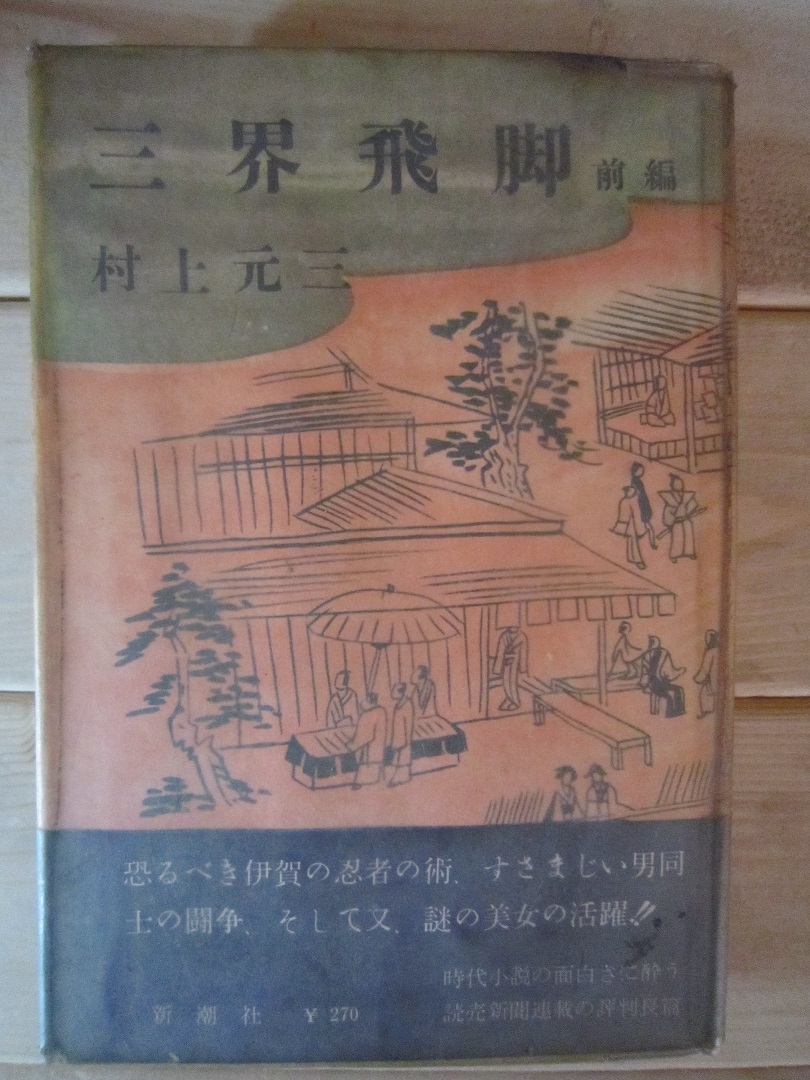 三界飛脚 前編
村上元三
恐るべき伊賀の忍者の術、すさまじい男同
士の闘争、そして又、謎の美女の活躍!!
時代小説の面白さに酔う
読売新聞連載の評判長篇
新潮社 ¥270